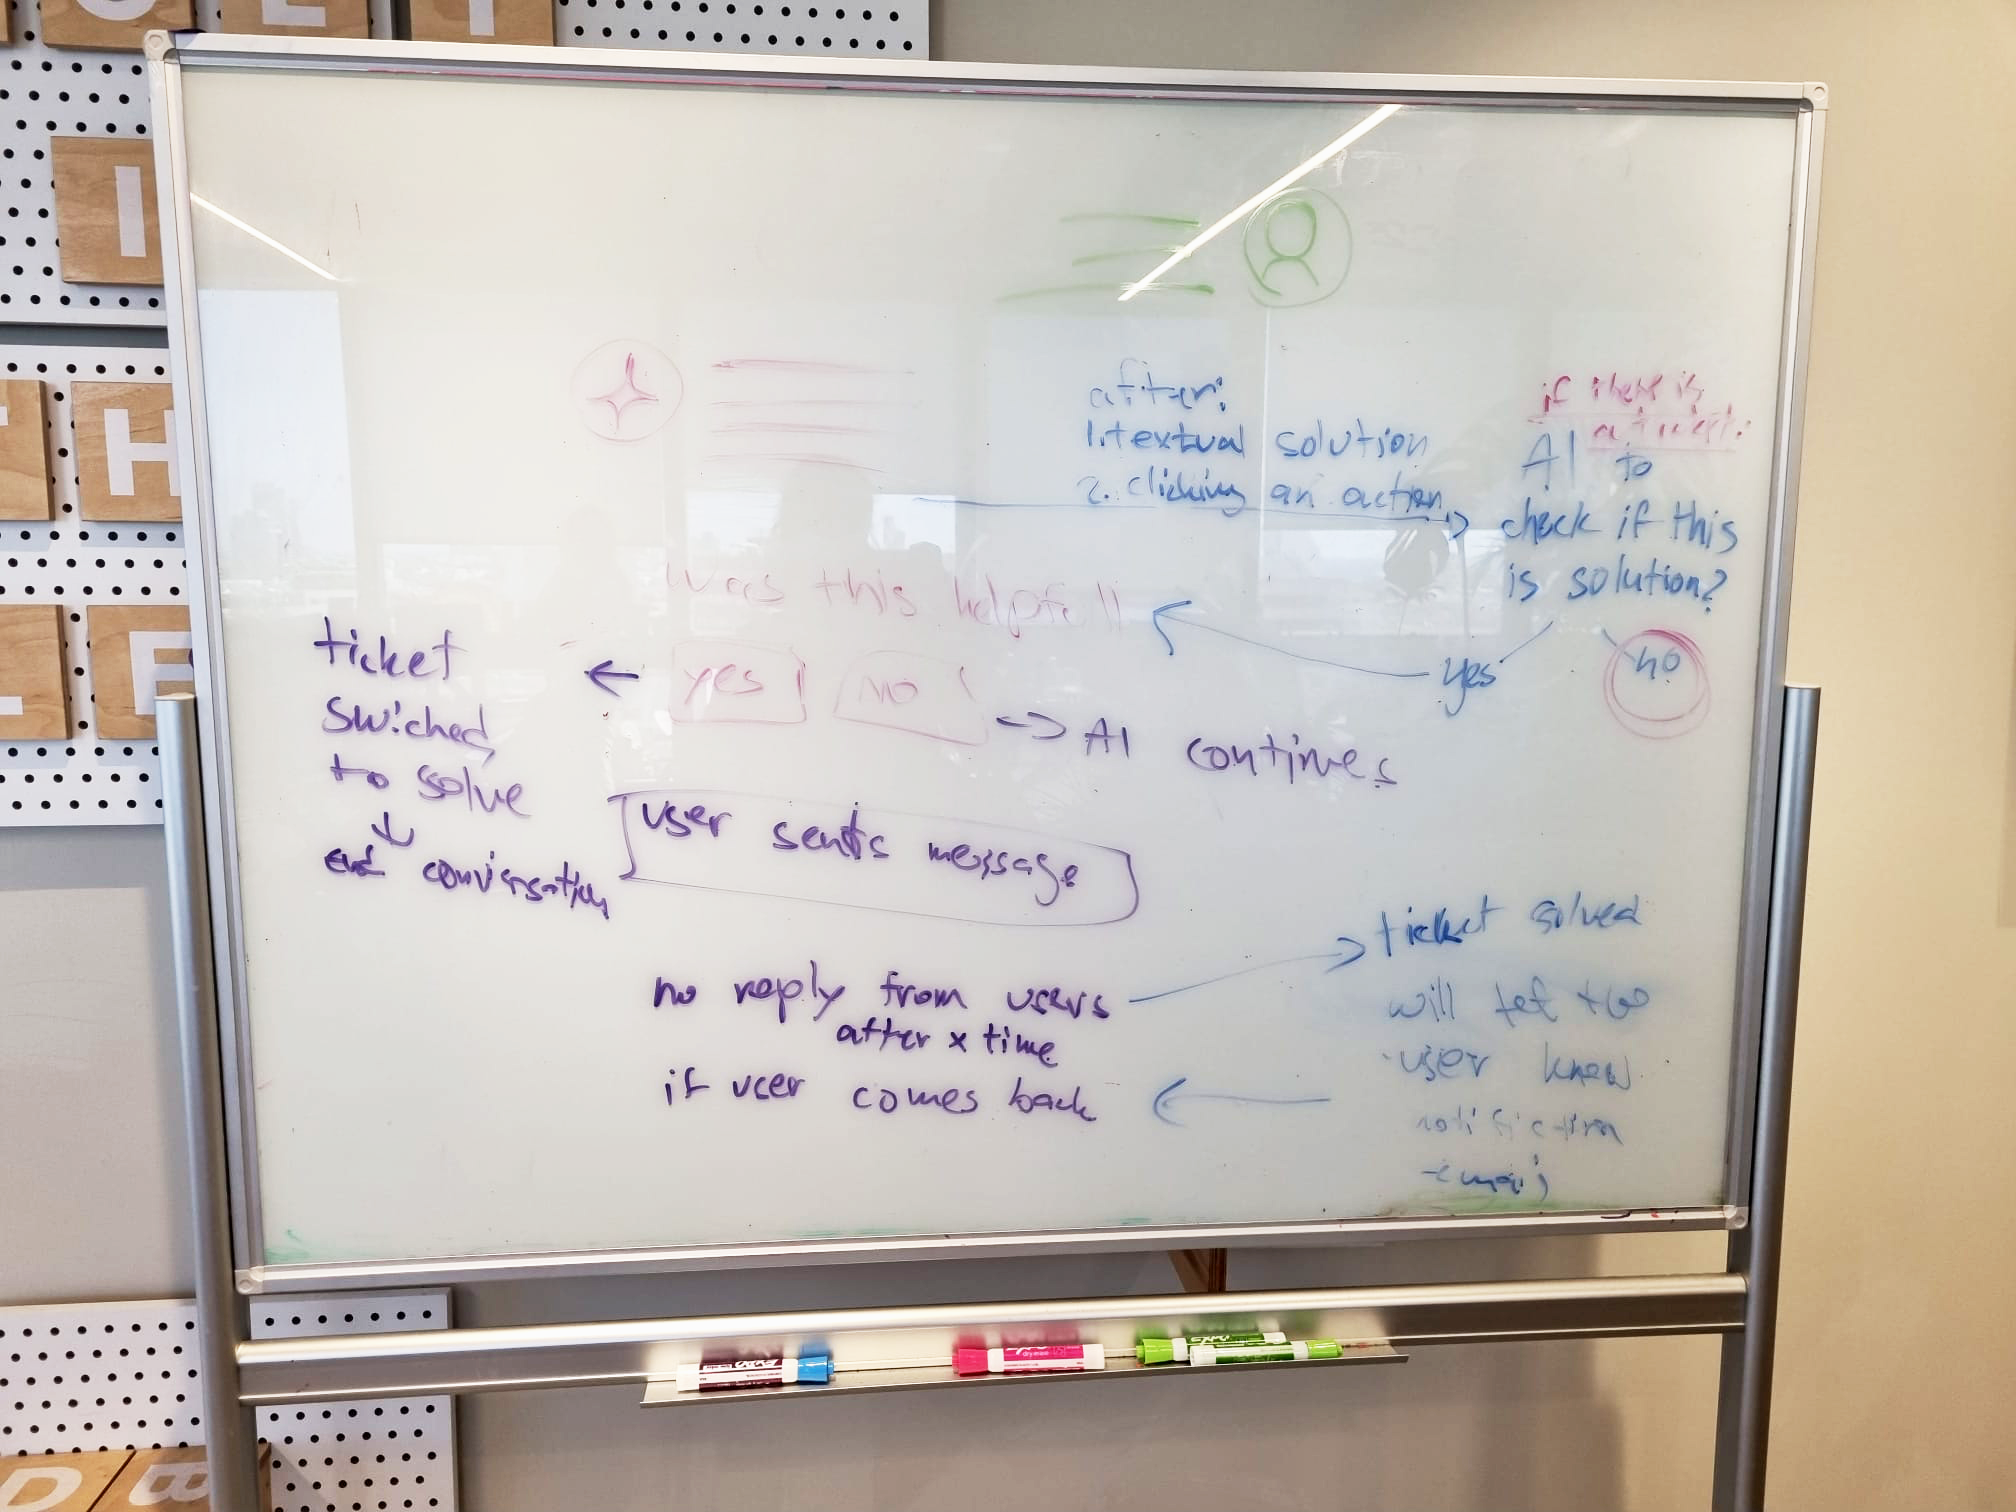 I
H
after:
1. textual solution
2. clicking an action
if there is
AI to
check if this
is solution?
yes
no
was this helpfull
yes
no
AI continues
ticket
swiched
to solve
end conversation
user sents message
no reply from users
after x time
if user comes back
ticket solved
will let
user know
notifiction
email
EXPO
D